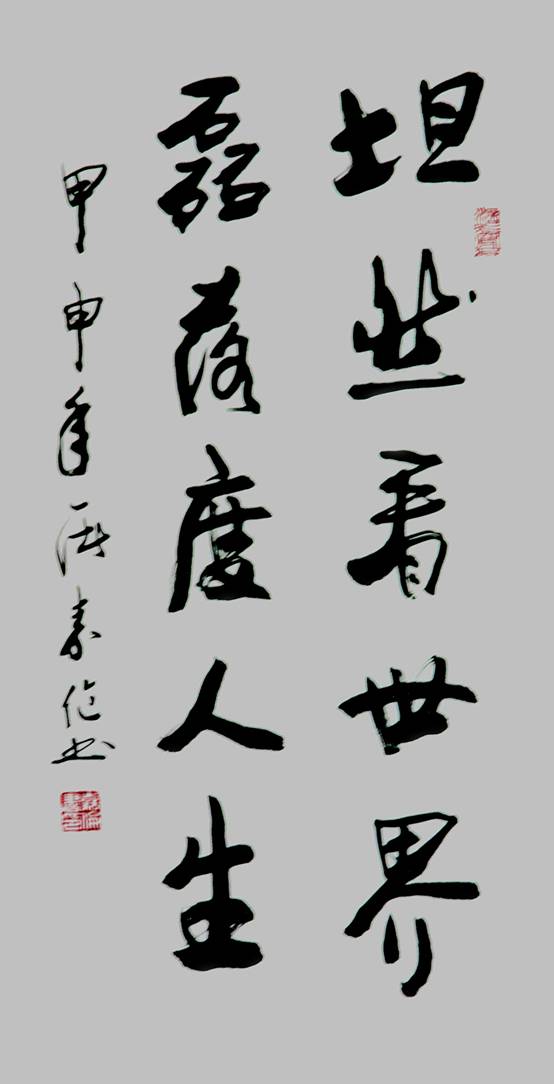 坦然看世界
磊落度人生
甲申年
书